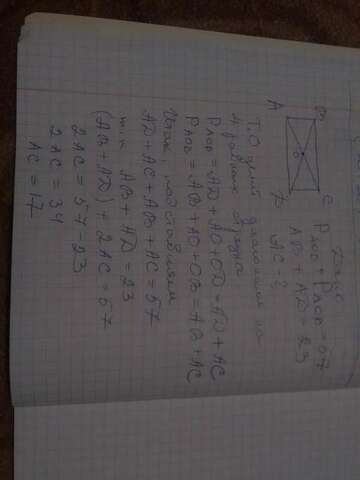 Дано
P AOD + P AOB = 57
AB + AD = 23
AC - ?
A B C D O
Т.О делит диагонали на
4 равные отрезка
P AOD = AD + AO + OD = AD + AC
P AOB = AB + AO + OB = AB + AC
Итак, подставляем
AD + AC + AB + AC = 57
т.к AB + AD = 23
(AB + AD) + 2AC = 57
2AC = 57 - 23
2AC = 34
AC = 17